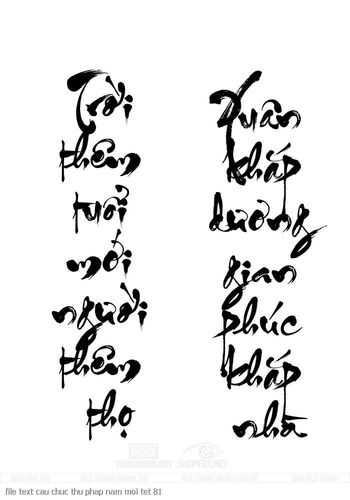 Trời
thêm
tuổi
mới
người
thêm
thọ
Xuân
khắp
dương
gian
phúc
khắp
nhà
SHOPFILE.NET
file text cau chuc thu phap nam moi tet 81